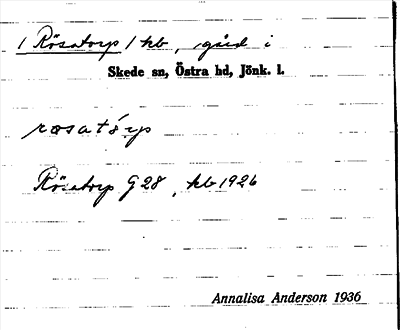 / Rösatorp / kb, gård i
Skede sn, Östra hd, Jönk. l.
rosatórp
Rösatorp G 28, kb 1926
Annalisa Anderson 1936